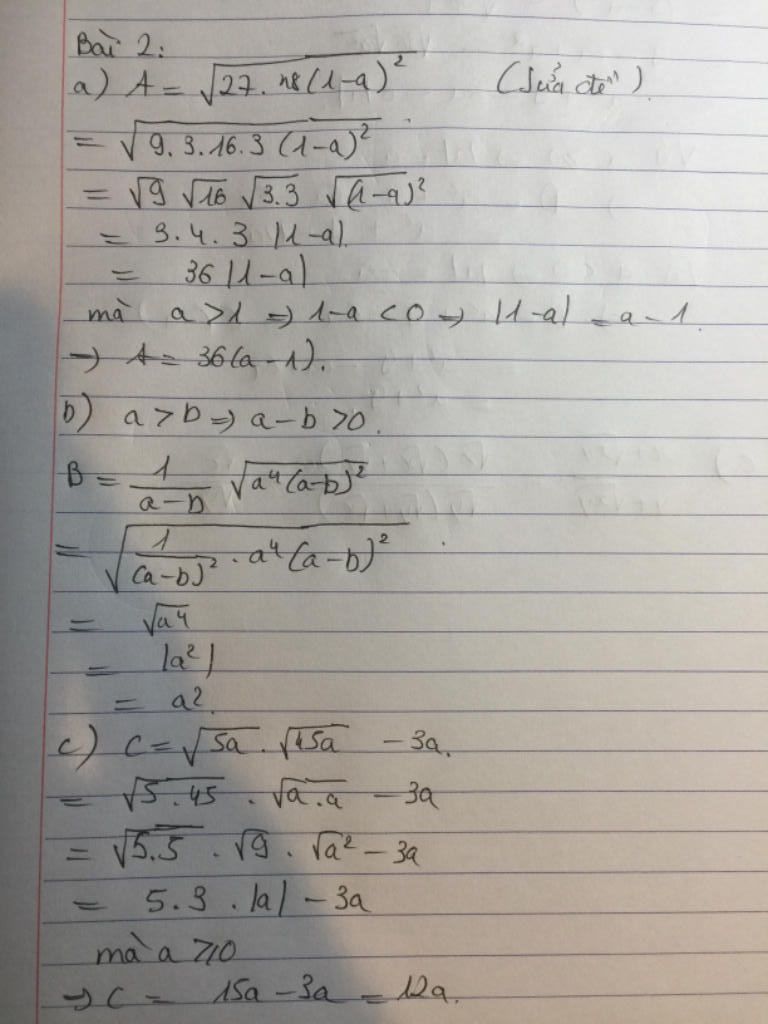 Bài 2:
a) A = √27.48(1-a)² (Sửa đề)
= √9.3.16.3(1-a)²
= √9 √16 √3.3 √(1-a)²
= 3.4.3 |1-a|
= 36|1-a|
mà a>1 => 1-a <0 => |1-a| = a-1.
-> A = 36(a-1).
b) a>b => a-b>0.
B = 1/(a-b) √a⁴(a-b)²
= √1/(a-b)² . a⁴(a-b)²
= √a⁴
= |a²|
= a².
c) C = √5a . √45a - 3a.
= √5.45 . √a.a - 3a
= √5.5 . √9 . √a² - 3a
= 5.3.|a| - 3a
mà a ≥ 0
=> C = 15a - 3a = 12a.